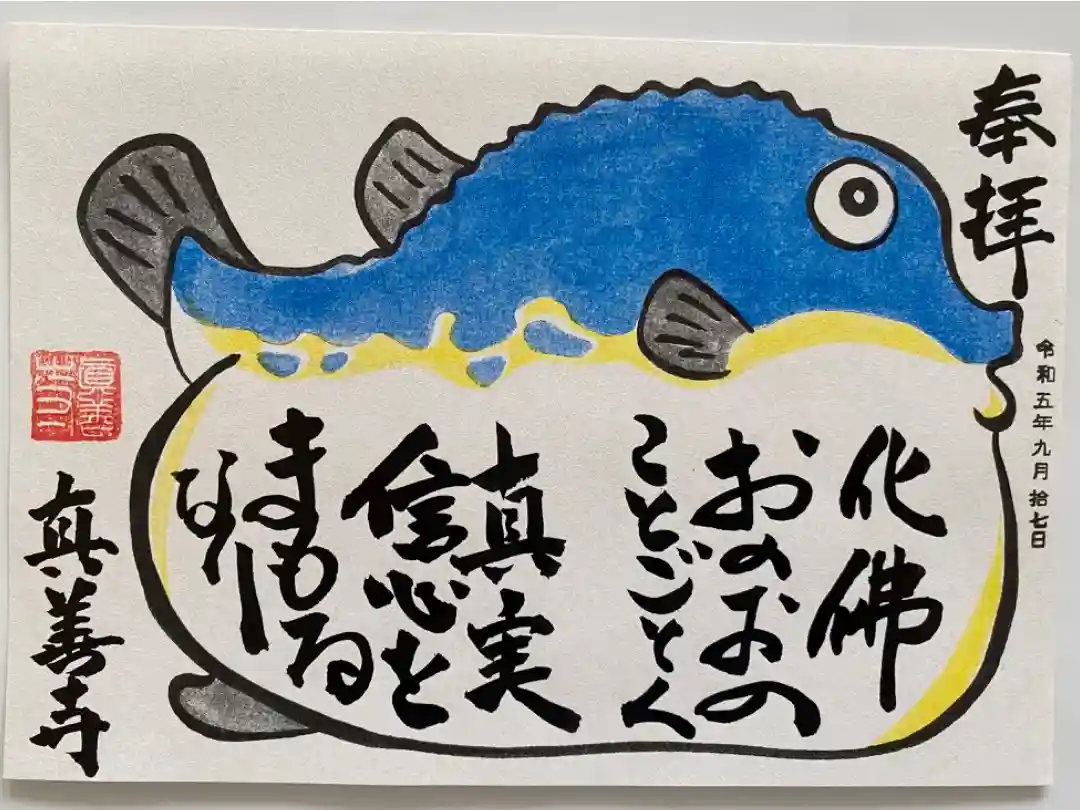 奉拝
令和五年九月拾七日
化佛
おのおの
ことごとく
真実
信心を
まもるなり
眞善寺
真善寺